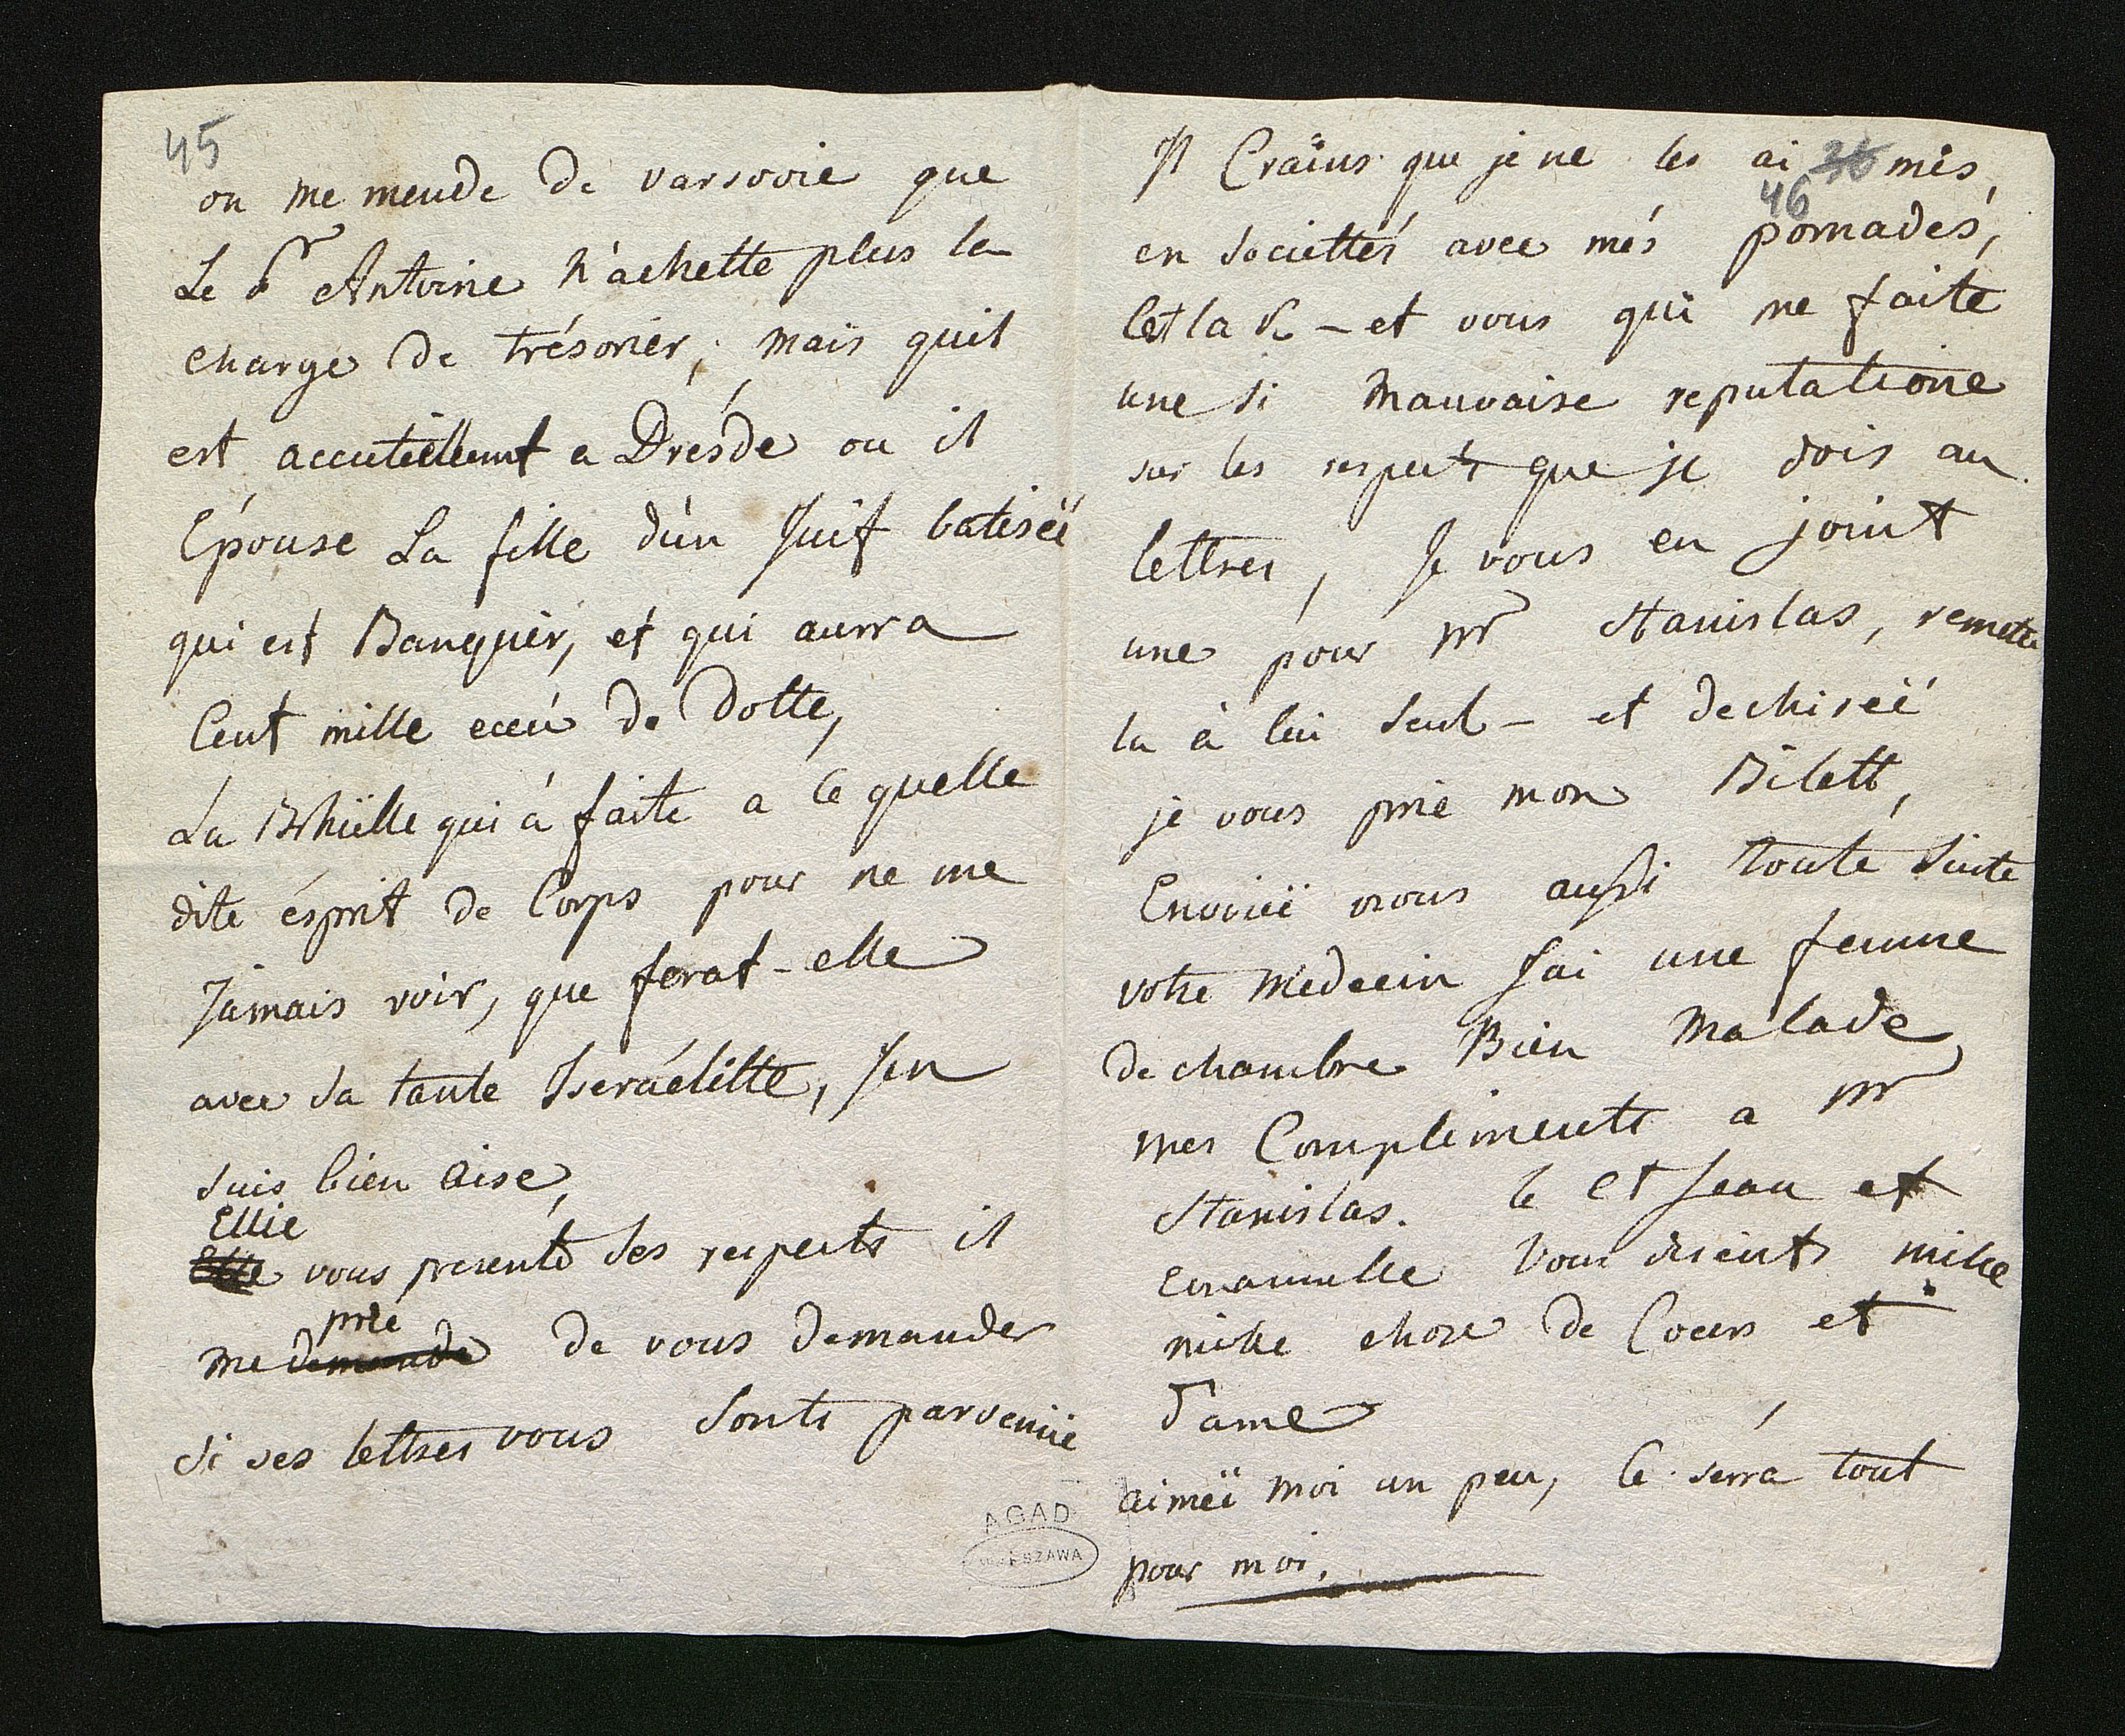 45
on me mende de varsovie que
Le Sr Antoine n'achette plus la
charge de trésorier; mais quil
est accutiellemt a Dresde ou il
Epouse La fille d'ún Juif batiseë
qui est Banquiér, et qui aurra
Cent mille eceú de Dotte,
La Bhülle qui á faite a ce quelle
dite ésprit de Corps pour ne me
Jamais voir, que ferat-elle
avec sa tante Iseráelitte, J'en
suis bien aise,
Ellie
Elle vous presente ses respects il
prie
me demande de vous demander
si ses lettres vous sonts parvenüe
Il Craïns que je ne les ai 26 mis,
46
en societtés avec més pomadés,
et vous qui ne faite
une si mauvaise reputatione
sur les respects que je dois au
lettres, Je vous en joint
une pour Mr Stanislas, remete
la á lui seul - et dechireé
je vous prie mon Bilett,
Envoieë nous aussi toute suite
votre Medecin J'ai une femme
de chambre Bien Malade,
mes Compliments a Mr
Stanislas. le et Jean et
Emanuelle Vous disent mille
mille chose de Coeurs et
d'ame
aimeë moi un peu, ce serra tout
pour moi.
AGAD
WARSZAWA